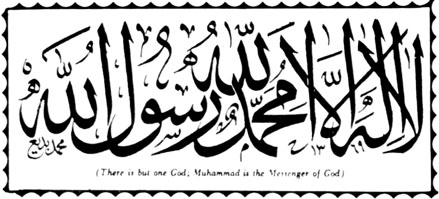 لا إله إلا الله محمد رسول الله
محمد بديع
(There is but one God; Muhammad is the Messenger of God)